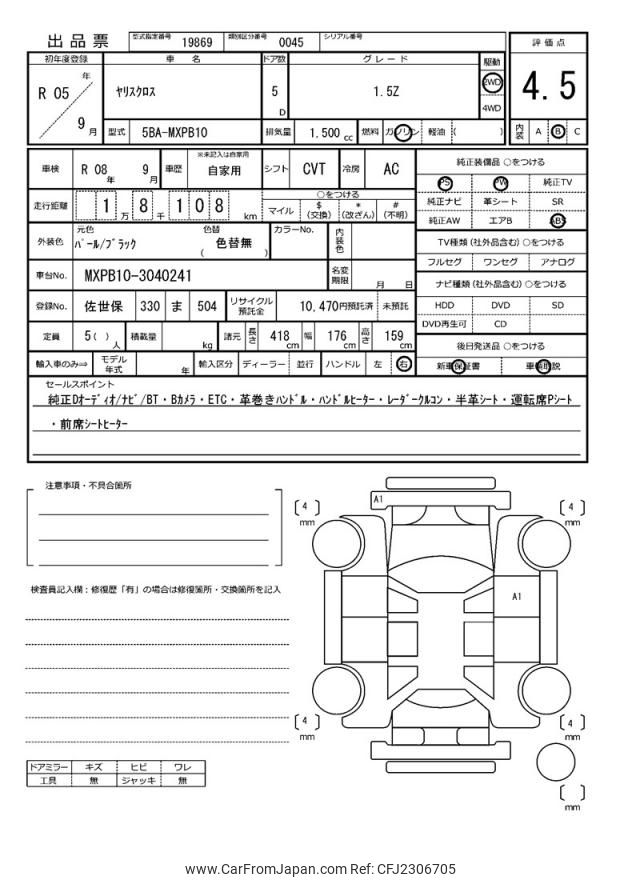 出品票 型式指定番号 19869 類別区分番号 0045 シリアル番号
初年度登録 車 名 ドア数 グレード 駆動 評価点
R 05 年 9 月 ヤリスクロス 5 D 1.5Z 2WD 4WD 4.5
型式 5BA-MXPB10 排気量 1.500 cc 燃料 ガソリン 軽油 ( ) 内装 A B C
車検 R 08 年 9 月 車歴 ※未記入は自家用 自家用 シフト CVT 冷房 AC
走行距離 1 万 8 千 1 0 8 km ○をつける マイル $ (交換) * (改ざん) # (不明)
外装色 元色 パール/ブラック 色替 ( 色替無 ) カラーNo. 内装色
車台No. MXPB10-3040241 名変期限 月 日
登録No. 佐世保 330 ま 504 リサイクル預託金 10,470円預託済 未預託
定員 5( ) 人 積載量 kg 諸元 長さ 418 cm 幅 176 cm 高さ 159 cm
輸入車のみ⇒ モデル年式 年 輸入区分 ディーラー 並行 ハンドル 左 右
純正装備品 ○をつける
PS PW 純正TV
純正ナビ 革シート SR
純正AW エアB ABS
TV種類 (社外品含む) ○をつける
フルセグ ワンセグ アナログ
ナビ種類 (社外品含む) ○をつける
HDD DVD SD
DVD再生可 CD
後日発送品 ○をつける
新車保証書 車輌取説
セールスポイント
純正Dオーディオ/ナビ/BT・Bカメラ・ETC・革巻きハンドル・ハンドルヒーター・レーダークルコン・半革シート・運転席Pシート
・前席シートヒーター
注意事項・不具合箇所
検査員記入欄:修復歴「有」の場合は修復箇所・交換箇所を記入
ドアミラー キズ ヒビ ワレ
工具 無 ジャッキ 無
[ 4 ] mm
A1
[ 4 ] mm
A1
[ 4 ] mm
[ 4 ] mm
[ ] mm
www.CarFromJapan.com Ref: CFJ2306705